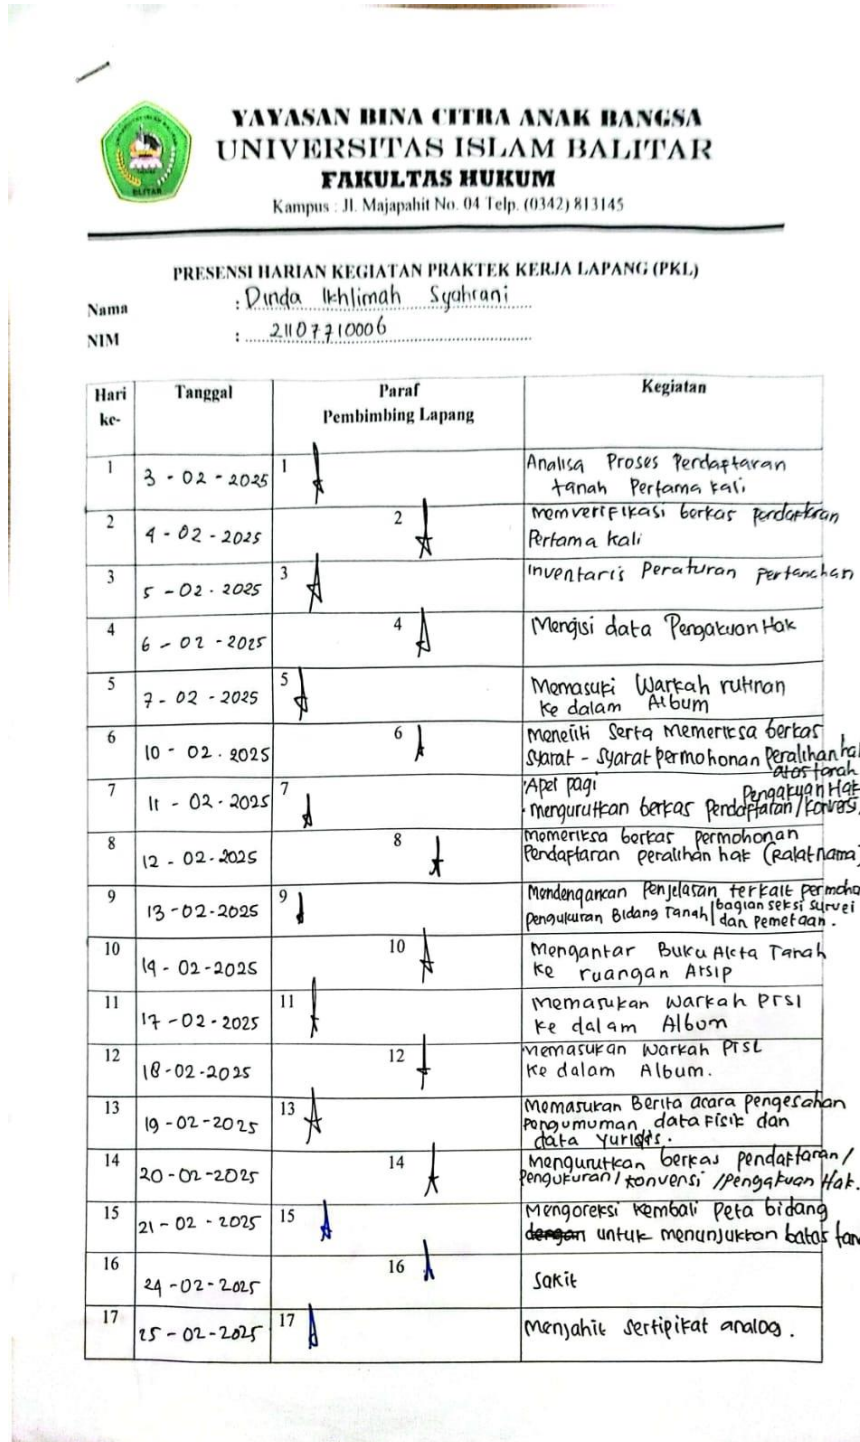 YAYASAN BINA CITRA ANAK BANGSA
UNIVERSITAS ISLAM BALITAR
FAKULTAS HUKUM
Kampus : Jl. Majapahit No. 04 Telp. (0342) 813145
BLITAR
PRESENSI HARIAN KEGIATAN PRAKTEK KERJA LAPANG (PKL)
Nama : Dinda Ikhlimah Syahrani
NIM : 21107710006
Hari ke- Tanggal Paraf Pembimbing Lapang Kegiatan
1 3 - 02 - 2025 1 Analisa Proses Perdaftaran
tanah Pertama kali
2 4 - 02 - 2025 2 Memverifikasi berkas
Pertama kali
3 5 - 02 - 2025 3 Inventaris Peraturan pertanahan
4 6 - 02 - 2025 4 Mengisi data Pengakuan Hak
5 7 - 02 - 2025 5 Memasuki Warkah rutinan
ke dalam Album
6 10 - 02 - 2025 6 Meneliti Serta Memeriksa berkas
Syarat - Syarat permohonan Peralihan
atas tanah
7 11 - 02 - 2025 7 Apel pagi Pengakuan Hak
mengurutkan berkas Pendaftaran / Konversi
8 12 - 02 - 2025 8 Memeriksa berkas permohonan
Pendaftaran peralihan hak (Ralat nama)
9 13 - 02 - 2025 9 Mendengarkan Penjelasan terkait
Pengukuran Bidang Tanah / bagian seksi survei
dan pemetaan.
10 14 - 02 - 2025 10 Mengantar Buku Akta Tanah
ke ruangan Arsip
11 17 - 02 - 2025 11 Memasukan Warkah PTSl
ke dalam Album
12 18 - 02 - 2025 12 Memasukan Warkah PTSL
ke dalam Album.
13 19 - 02 - 2025 13 Memasukan Berita acara pengesahan
Pengumuman data Fisik dan
data Yuridis.
14 20 - 02 - 2025 14 Mengurutkan berkas pendaftaran /
Pengukuran / Konvensi / Pengakuan Hak.
15 21 - 02 - 2025 15 Mengoreksi Kembali Peta bidang
dengan untuk menunjukkan batas
16 24 - 02 - 2025 16 Sakit
17 25 - 02 - 2025 17 Menjahit sertipikat analog.